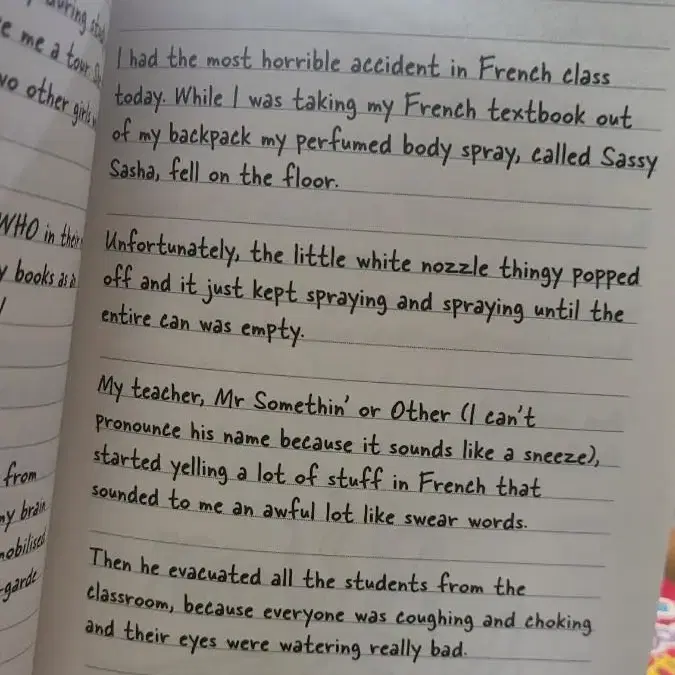 during
e me a tour
wo other girls
WHO in their
y books as a
from
my brain
mobilised
garde
I had the most horrible accident in French class
today. While I was taking my French textbook out
of my backpack my perfumed body spray, called Sassy
Sasha, fell on the floor.
Unfortunately, the little white nozzle thingy popped
off and it just kept spraying and spraying until the
entire can was empty.
My teacher, Mr Somethin' or Other (I can't
pronounce his name because it sounds like a sneeze),
started yelling a lot of stuff in French that
sounded to me an awful lot like swear words.
Then he evacuated all the students from the
classroom, because everyone was coughing and choking
and their eyes were watering really bad.